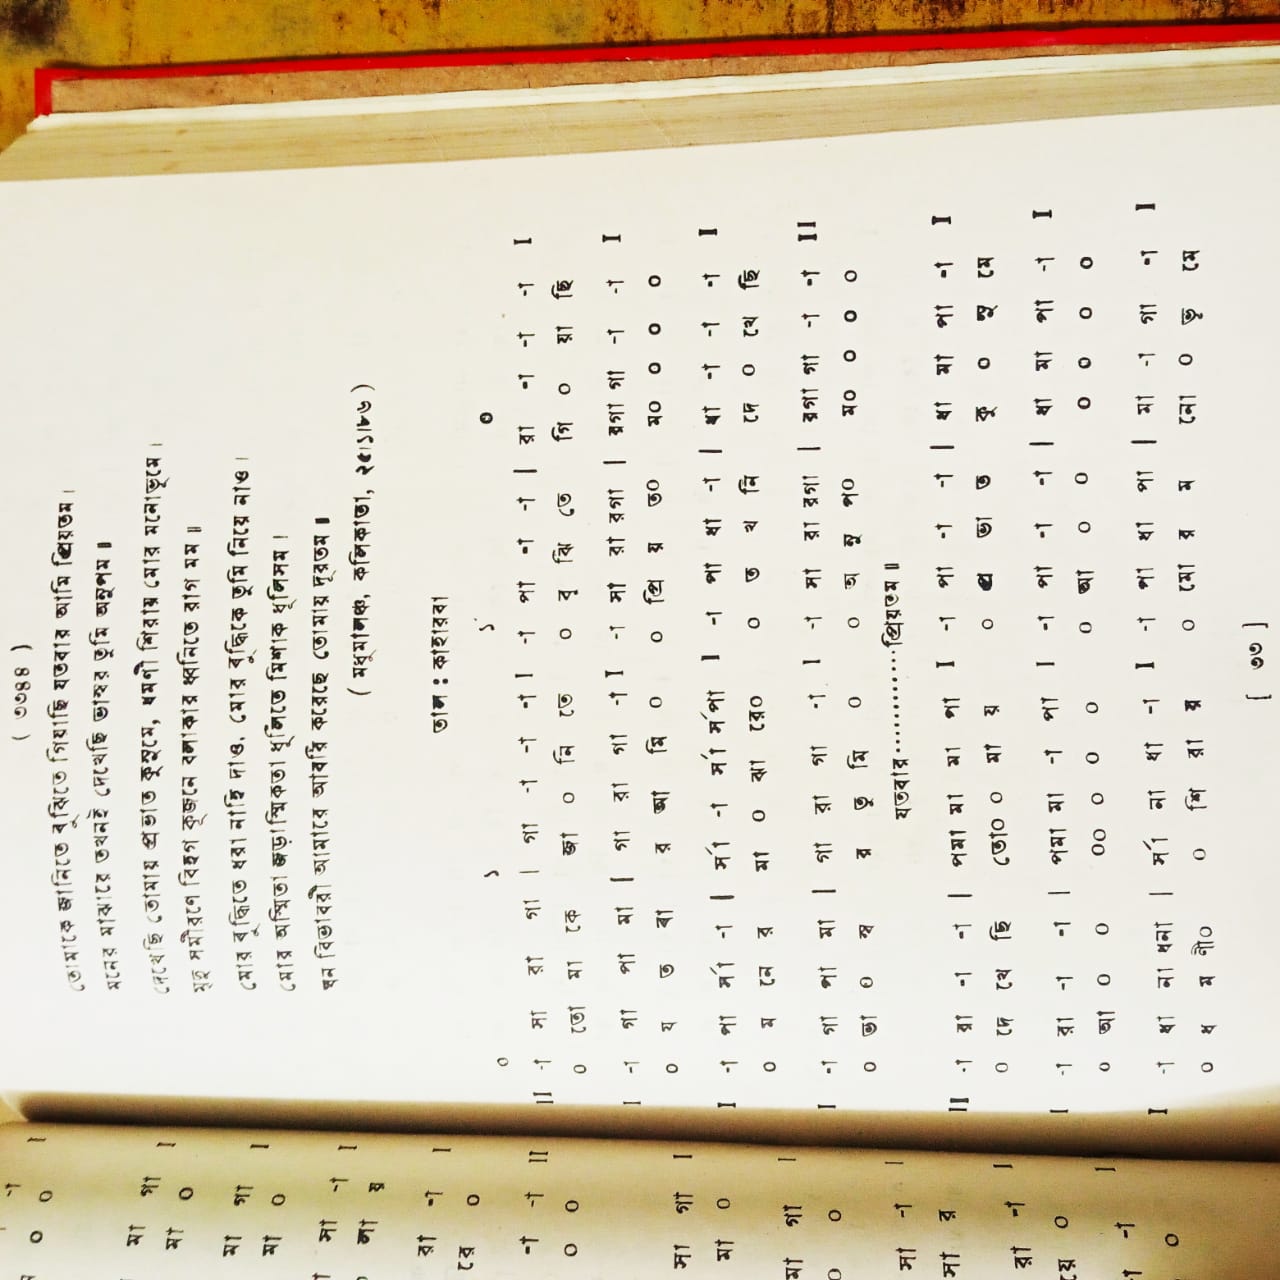 ( ৩৩৪৪ )
তোমাকে জানিতে বুঝিতে গিয়াছি যতবার আমি প্রিয়তম ।
মনের মাঝারে তখনই দেখেছি ভাস্বর তুমি অনুপম ॥
দেখেছি তোমায় প্রভাত কুসুমে, ধমণী শিরায় মোর মনোভূমে ।
মৃদু সমীরণে বিহগ কূজনে বলাকার ধ্বনিতে রাগ মম ॥
মোর বুদ্ধিতে ধরা নাহি দাও, মোর বুদ্ধিকে তুমি নিয়ে নাও ।
মোর অস্মিতা জড়াস্মিকতা ধূলিতে মিশাক ধূলিসম ।
ঘন বিভাবরী আমারে আবরি করেছে তোমায় দূরতম ॥
( মধুমালঞ্চ, কলিকাতা, ২৫।১।৮৬ )
তাল : কাহারবা
০ ১ ১´ ০
II -া সা রা গা | গা -া -া -া I -া পা -া -া | রা -া -া -া I
০ তো মা কে জা ০ নি তে ০ বু ঝি তে গি ০ য়া ছি
I -া গা পা মা | গা রা গা -া I -া সা রা রগা | রগা গা -া -া I
০ য ত বা র আ মি ০ ০ প্রি য় ত০ ম০ ০ ০ ০
I -া পা র্সা -া | র্সা -া র্সা র্সপা I -া পা ধা -া | ধা -া -া -া I
০ ম নে র মা ০ ঝা রে০ ০ ত খ নি দে ০ খে ছি
I -া গা পা মা | গা রা গা -া I -া সা রা রগা | রগা গা -া -া II
০ ভা ০ স্ব র তু মি ০ ০ অ নু প০ ম০ ০ ০ ০
যতবার...........প্রিয়তম ॥
II -া রা -া -া | পমা মা মা পা I -া পা -া -া | ধা মা পা -া I
০ দে খে ছি তো০ ০ মা য় ০ প্র ভা ত কু ০ সু মে
I -া রা -া -া | পমা মা -া পা I -া পা -া -া | ধা মা পা -া I
০ আ ০ ০ ০০ ০ ০ ০ ০ আ ০ ০ ০ ০ ০ ০
I -া ধা না ধনা | র্সা না ধা -া I -া পা ধা পা | মা -া গা -া I
০ ধ ম ণী০ ০ শি রা য় ০ মো র ম নো ০ ভূ মে
[ ৩৩ ]